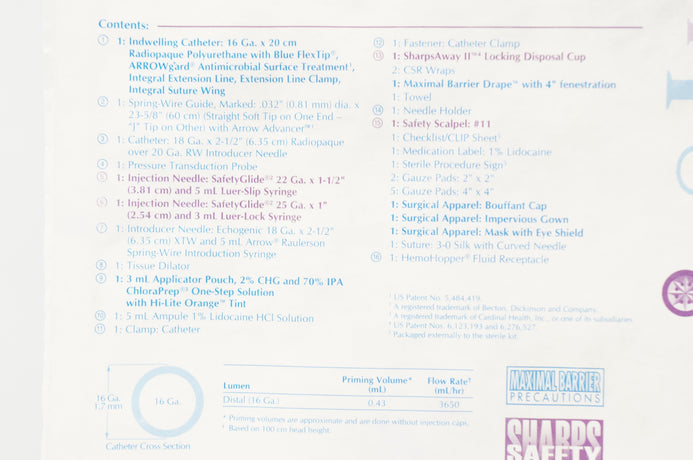 Contents:
1 1: Indwelling Catheter: 16 Ga. x 20 cm
Radiopaque Polyurethane with Blue FlexTip®,
ARROWg+ard® Antimicrobial Surface Treatment¹,
Integral Extension Line, Extension Line Clamp,
Integral Suture Wing
2 1: Spring-Wire Guide, Marked: .032" (0.81 mm) dia. x
23-5/8" (60 cm) (Straight Soft Tip on One End –
"J" Tip on Other) with Arrow Advancer®
3 1: Catheter: 18 Ga. x 2-1/2" (6.35 cm) Radiopaque
over 20 Ga. RW Introducer Needle
4 1: Pressure Transduction Probe
5 1: Injection Needle: SafetyGlide®² 22 Ga. x 1-1/2"
(3.81 cm) and 5 mL Luer-Slip Syringe
6 1: Injection Needle: SafetyGlide®² 25 Ga. x 1"
(2.54 cm) and 3 mL Luer-Lock Syringe
7 1: Introducer Needle: Echogenic 18 Ga. x 2-1/2"
(6.35 cm) XTW and 5 mL Arrow® Raulerson
Spring-Wire Introduction Syringe
8 1: Tissue Dilator
9 1: 3 mL Applicator Pouch, 2% CHG and 70% IPA
ChloraPrep®³ One-Step Solution
with Hi-Lite Orange™ Tint
10 1: 5 mL Ampule 1% Lidocaine HCl Solution
11 1: Clamp: Catheter
12 1: Fastener: Catheter Clamp
13 1: SharpsAway II™⁴ Locking Disposal Cup
2: CSR Wraps
1: Maximal Barrier Drape™ with 4" fenestration
1: Towel
14 1: Needle Holder
15 1: Safety Scalpel: #11
1: Checklist/CLIP Sheet⁵
1: Medication Label: 1% Lidocaine
1: Sterile Procedure Sign⁵
2: Gauze Pads: 2" x 2"
5: Gauze Pads: 4" x 4"
1: Surgical Apparel: Bouffant Cap
1: Surgical Apparel: Impervious Gown
1: Surgical Apparel: Mask with Eye Shield
1: Suture: 3-0 Silk with Curved Needle
16 1: HemoHopper® Fluid Receptacle
¹ US Patent No. 5,484,419.
² A registered trademark of Becton, Dickinson and Company.
³ A registered trademark of Cardinal Health, Inc., or one of its subsidiaries.
⁴ US Patent Nos. 6,123,193 and 6,276,527.
⁵ Packaged externally to the sterile kit.
16 Ga.
1.7 mm
16 Ga.
Catheter Cross Section
Lumen Priming Volume* (mL) Flow Rate† (mL/hr)
Distal (16 Ga.) 0.43 3650
* Priming volumes are approximate and are done without injection caps.
† Based on 100 cm head height.
MAXIMAL BARRIER
PRECAUTIONS
SHARPS
SAFETY